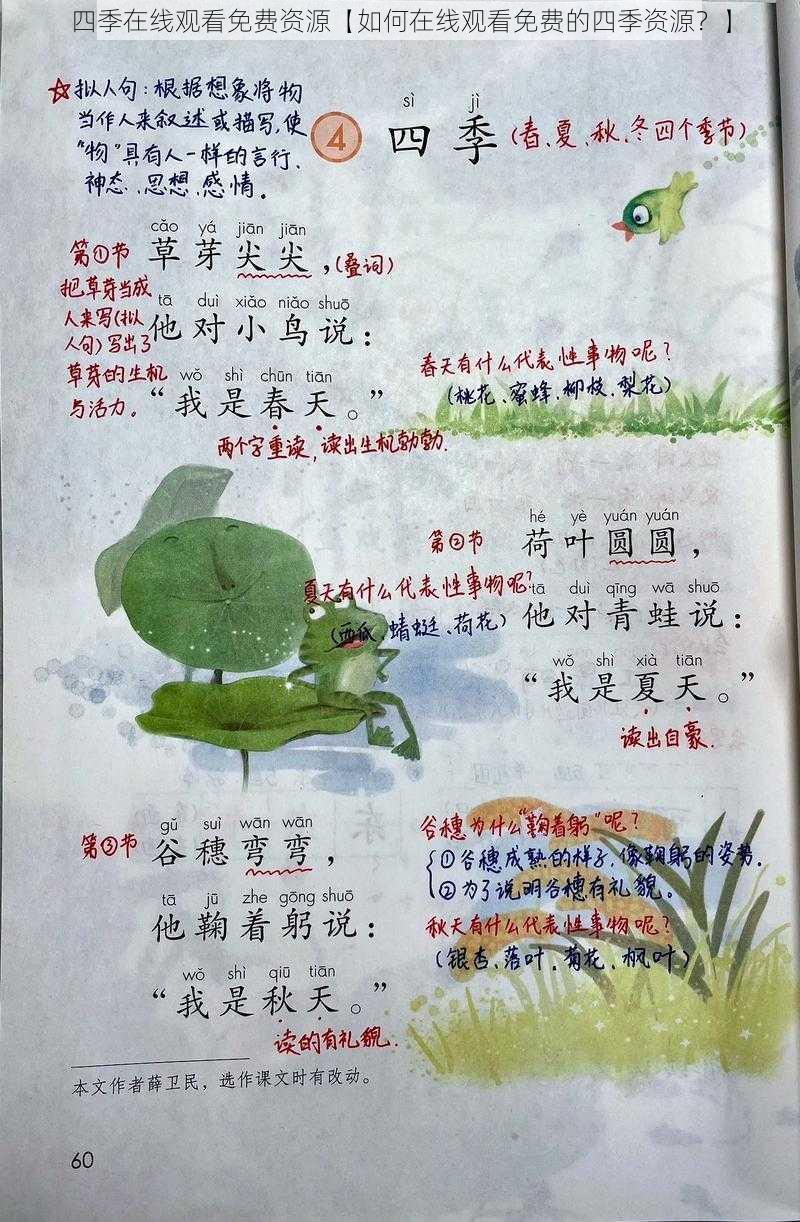 四季在线观看免费资源【如何在线观看免费的四季资源？】
☆拟人句：根据想象将物
当作人来叙述或描写，使
“物”具有人一样的言行、
神态、思想、感情。
sì jì
4 四季（春、夏、秋、冬四个季节）
cǎo yá jiān jiān
第①节 草芽尖尖，（叠词）
把草芽当成
人来写（拟
人句）写出了
草芽的生机
与活力。
tā duì xiǎo niǎo shuō
他对小鸟说：
wǒ shì chūn tiān
“我是春天。”
两个字重读，读出生机勃勃.
春天有什么代表性事物呢？
（桃花、蜜蜂、柳枝、梨花）
hé yè yuán yuán
第②节 荷叶圆圆，
夏天有什么代表性事物呢？
（西瓜、蜻蜓、荷花）
tā duì qīng wā shuō
他对青蛙说：
wǒ shì xià tiān
“我是夏天。”
读出自豪.
gǔ suì wān wān
第③节 谷穗弯弯，
tā jū zhe gōng shuō
他鞠着躬说：
wǒ shì qiū tiān
“我是秋天。”
读的有礼貌.
谷穗为什么“鞠着躬”呢？
①谷穗成熟的样子，像鞠躬的姿势.
②为了说明谷穗有礼貌。
秋天有什么代表性事物呢？
（银杏、落叶、菊花、枫叶）
本文作者薛卫民，选作课文时有改动。
60